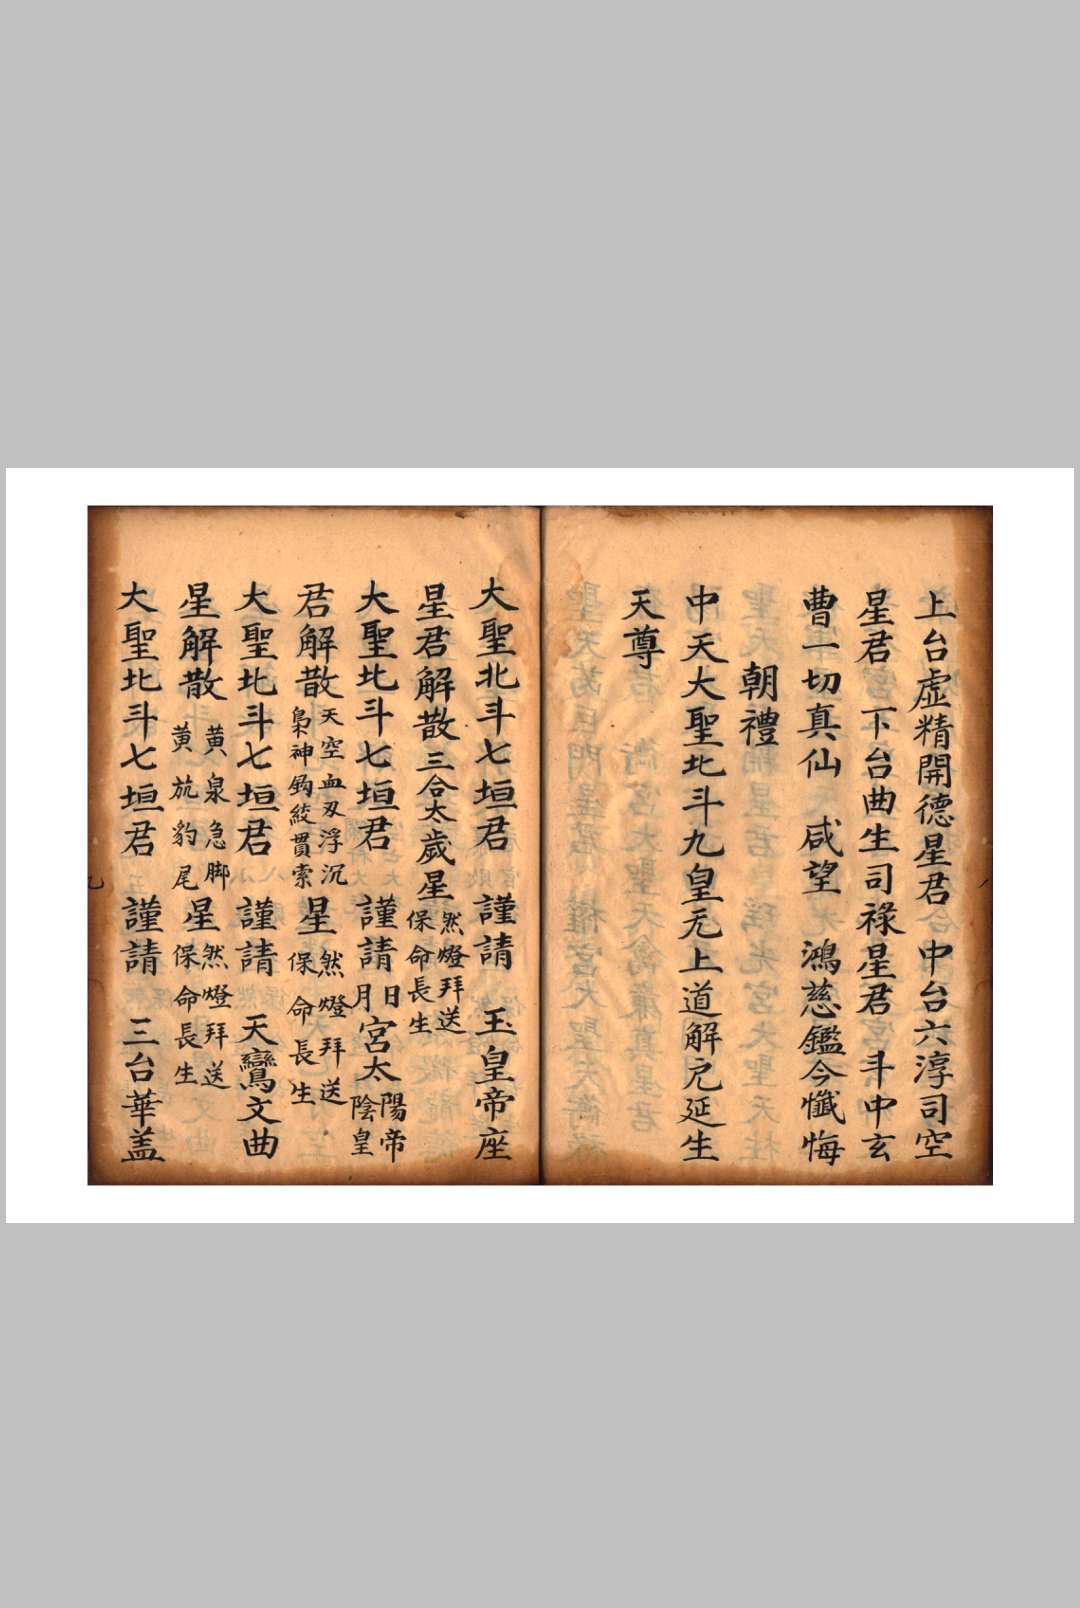 上台虛精開德星君　中台六淳司空
星君　下台曲生司祿星君　斗中玄
曹一切真仙　咸望　鴻慈鑑今懺悔
朝禮
中天大聖北斗九皇旡上道解厄延生
天尊
大聖北斗七垣君　謹請　玉皇帝座
星君解散三合太歲星然燈拜送保命長生
大聖北斗七垣君　謹請日月宮太陽帝陰皇
君解散天空血刃浮沉梟神鈎絞貫索星然燈拜送保命長生
大聖北斗七垣君　謹請　天鸞文曲
星解散黃泉急脚黃旛豹尾星然燈拜送保命長生
大聖北斗七垣君　謹請　三台華盖